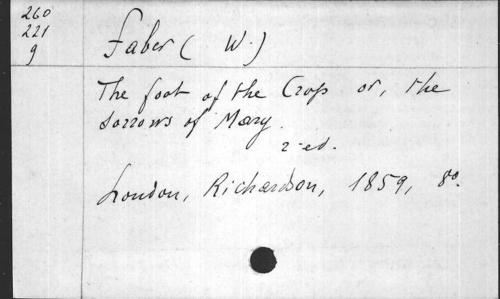 260
221
9
Faber ( W.)
The foot of the Cross or, the
sorrows of Mary.
2-ed.
London, Richardson, 1859, 8o.